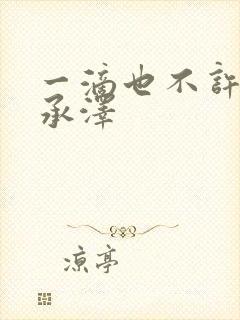 一滴也不許
承澤
凉亭